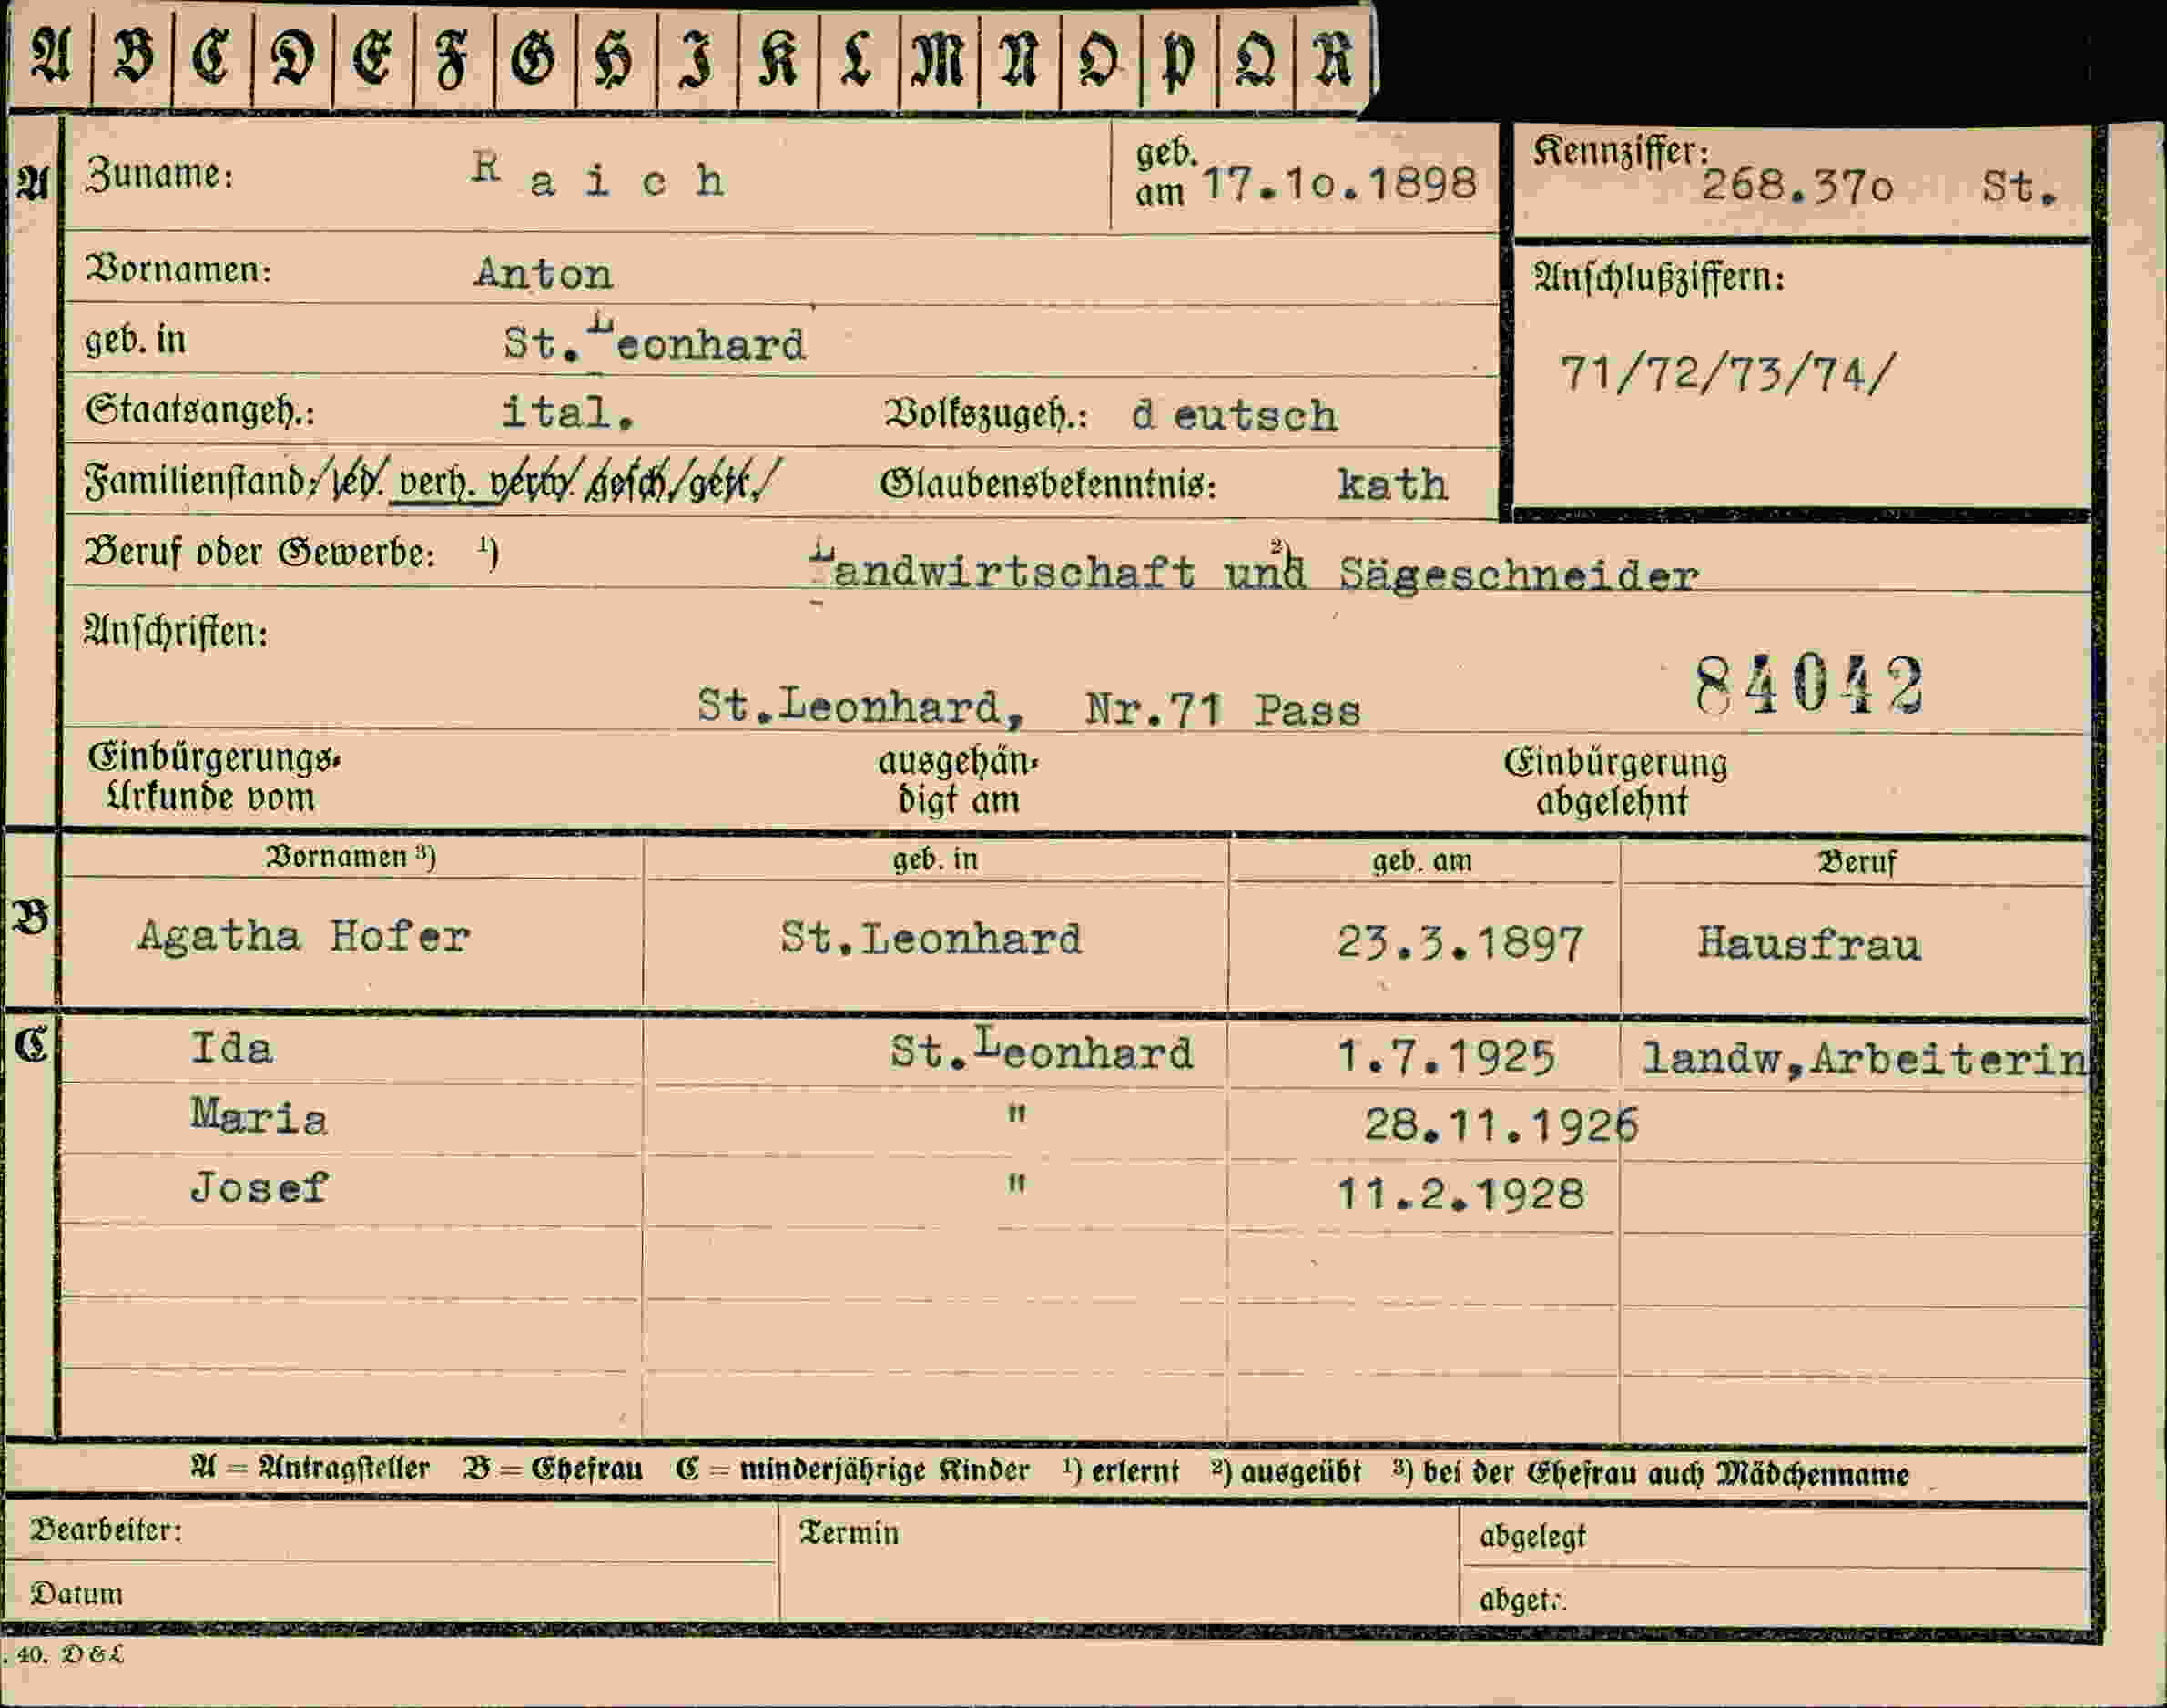 A B C D E F G H I K L M N O P Q R
A Zuname: Raich geb. am 17.10.1898 Kennziffer: 268.370 St.
Vornamen: Anton Anschlußziffern:
geb. in St.Leonhard 71/72/73/74/
Staatsangeh.: ital. Volkszugeh.: d eutsch
Familienstand: led. verh. verw. gesch. getr. Glaubensbekenntnis: kath
Beruf oder Gewerbe: ¹) Landwirtschaft und ²) Sägeschneider
Anschriften:
84042
St.Leonhard, Nr.71 Pass
Einbürgerungs- ausgehän- Einbürgerung
Urkunde vom digt am abgelehnt
Vornamen ³) geb. in geb. am Beruf
B Agatha Hofer St.Leonhard 23.3.1897 Hausfrau
C Ida St.Leonhard 1.7.1925 landw,Arbeiterin
Maria " 28.11.1926
Josef " 11.2.1928
A = Antragsteller B = Ehefrau C = minderjährige Kinder ¹) erlernt ²) ausgeübt ³) bei der Ehefrau auch Mädchenname
Bearbeiter: Termin abgelegt
Datum abget.:
. 40. D & L